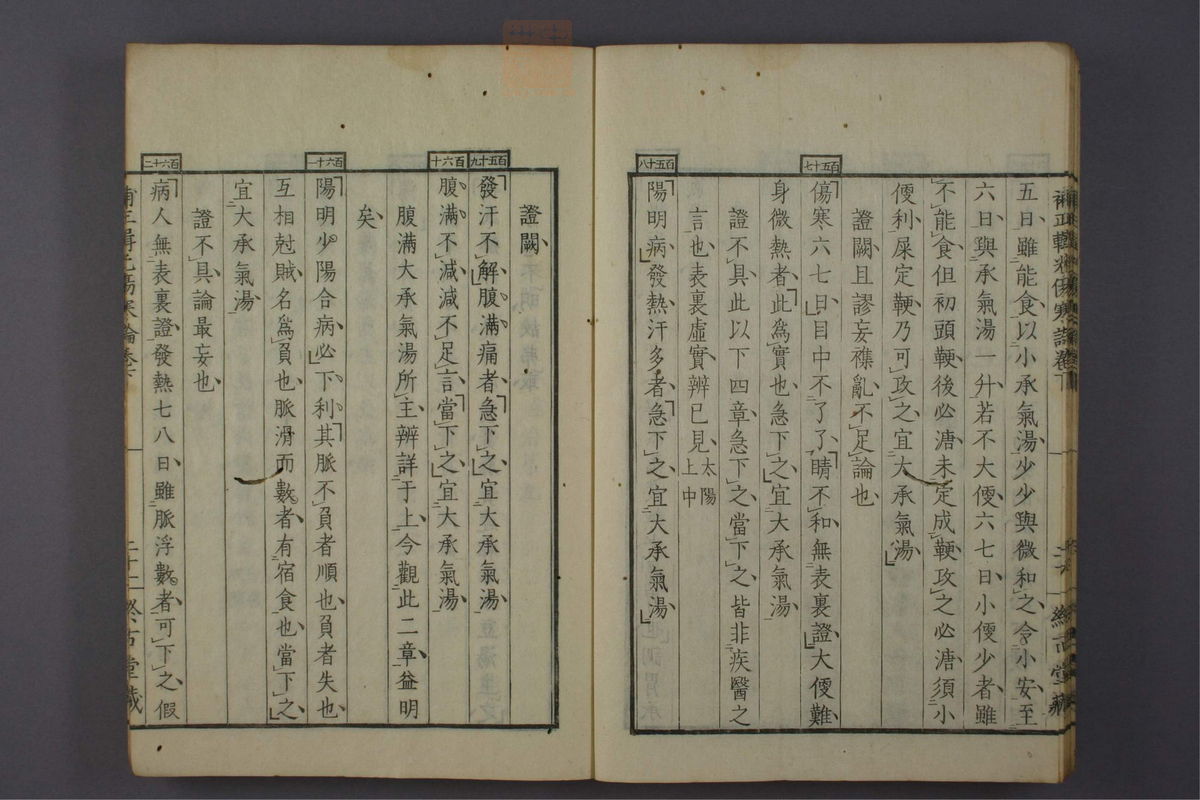 補正輯光傷寒論
五日雖能食以小承氣湯少少與微和之令小安至
六日與承氣湯一升若不大便六七日小便少者雖
不能食但初頭鞕後必溏未定成鞕攻之必溏須小
便利屎定鞕乃可攻之宜大承氣湯
證闕且謬妄襍亂不足論也
百五十七
傷寒六七日目中不了了睛不和無表裏證大便難
身微熱者此為實也急下之宜大承氣湯
證不具此以下四章急下之當下之皆非疾醫之
言也表裏虛實辨已見太陽上中
百五十八
陽明病發熱汗多者急下之宜大承氣湯
證闕
百五十九
發汗不解腹滿痛者急下之宜大承氣湯
百六十
腹滿不減減不足言當下之宜大承氣湯
腹滿大承氣湯所主辨詳于上今觀此二章益明
矣
百六十一
陽明少陽合病必下利其脈不負者順也負者失也
互相尅賊名為負也脈滑而數者有宿食也當下之
宜大承氣湯
證不具論最妄也
百六十二
病人無表裏證發熱七八日雖脈浮數者可下之假
二十二 終古堂藏